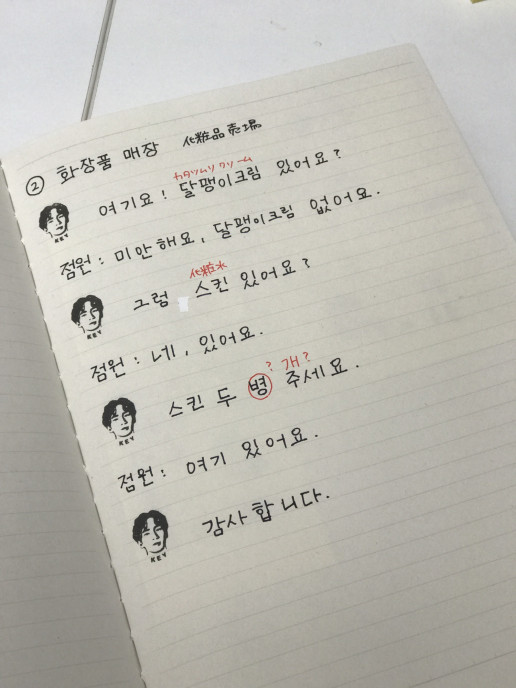 ② 화장품 매장 化粧品売場
カタツムリクリーム
여기요! 달팽이크림 있어요?
KEY
점원: 미안해요, 달팽이크림 없어요.
化粧水
그럼 스킨 있어요?
KEY
점원: 네, 있어요.
? 개?
스킨 두 병 주세요.
KEY
점원: 여기 있어요.
감사합니다.
KEY